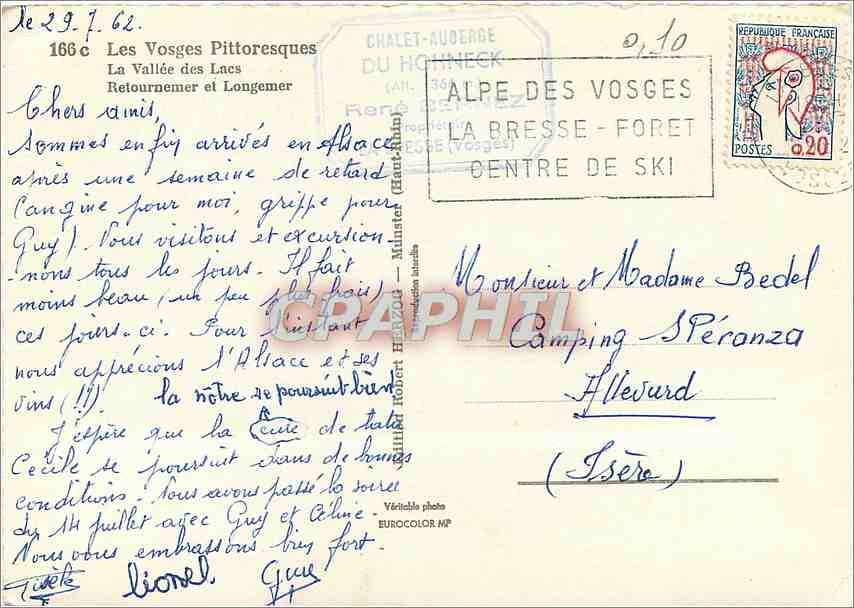 le 29.7.62.
166 c Les Vosges Pittoresques
La Vallée des Lacs
Retournemer et Longemer
Chers amis,
Sommes en fin arrivés en Alsace
après une semaine de retard
(angine pour moi, grippe pour
Guy). Nous visitons et excursion-
-nons tous les jours. Il fait
moins beau (un peu plus frais)
ces jours-ci. Pour l'instant
nous apprécions l'Alsace et ses
vins (!!) la nôtre se poursuit bien
J'espère que la cure de tata
Cécile se poursuit dans de bonnes
conditions. Nous avons passé la soirée
du 14 juillet avec Guy et Céline.
Nous vous embrassons bien fort.
Gisèle Lionel Guy
CHALET-AUBERGE
DU HOHNECK
(Alt. 136
René
Propriétaire
LA BRESSE (Vosges)
0,10
ALPE DES VOSGES
LA BRESSE - FORET
CENTRE DE SKI
REPUBLIQUE FRANÇAISE
POSTES 0,20
Edition Robert HERZOG — Munster (Haut-Rhin)
Reproduction interdite
Monsieur et Madame Bedel
Camping SPéranza
Allevard
(Isère)
Véritable photo
EUROCOLOR MP
CPAPHIL